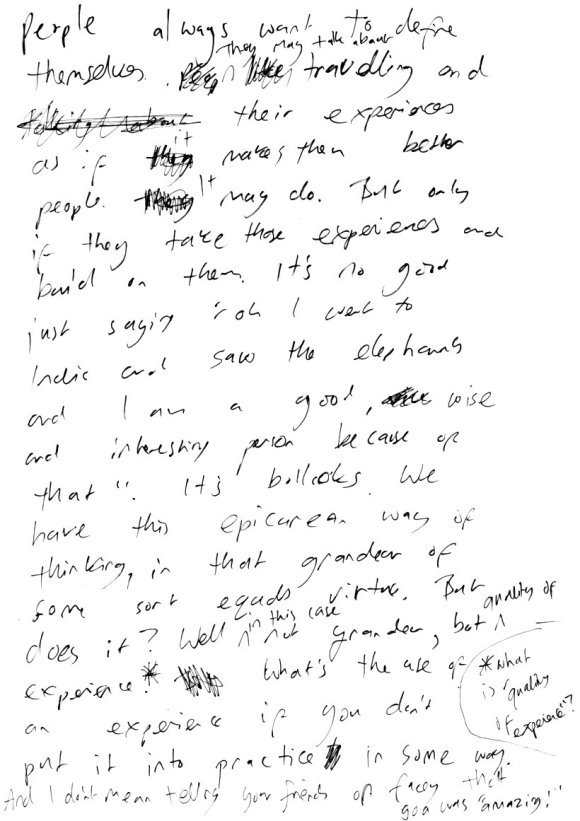 people always want to define
they may talk about
themselves. travelling and
their experiences
it
as if makes them better
people. It may do. But only
if they take those experiences and
build on them. It's no good
just saying "oh I went to
India and saw the elephants
and I am a good, wise
and interesting person because of
that". It's bollocks. We
have this epicurean way of
thinking, in that grandeur of
some sort equals virtue. But
does it? Well in this case not grandeur, but quality of
experience.* What's the use of
an experience if you don't
put it into practice in some way.
And I don't mean telling your friends on facey that
goa was "amazing!"
*what
is "quality
of experience"?